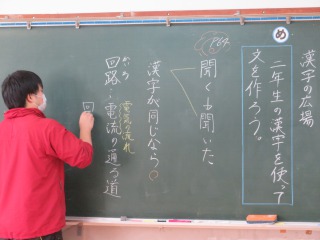 漢字の広場
め
二年生の漢字を使って
文を作ろう。
P64
聞くも聞いた
漢字が同じなら○
電気の流れ
かいろ
回路:電流の通る道
回